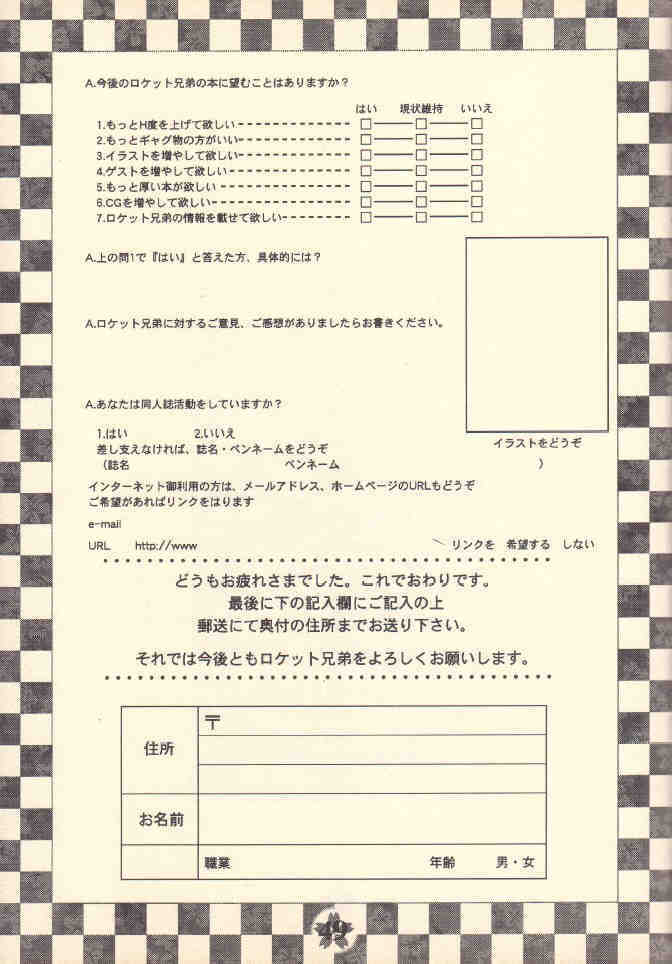 A.今後のロケット兄弟の本に望むことはありますか？
はい　現状維持　いいえ
1.もっとH度を上げて欲しい
2.もっとギャグ物の方がいい
3.イラストを増やして欲しい
4.ゲストを増やして欲しい
5.もっと厚い本が欲しい
6.CGを増やして欲しい
7.ロケット兄弟の情報を載せて欲しい
A.上の問1で『はい』と答えた方、具体的には？
A.ロケット兄弟に対するご意見、ご感想がありましたらお書きください。
A.あなたは同人誌活動をしていますか？
1.はい　2.いいえ
イラストをどうぞ
差し支えなければ、誌名・ペンネームをどうぞ
（誌名　ペンネーム　）
インターネット御利用の方は、メールアドレス、ホームページのURLもどうぞ
ご希望があればリンクをはります
e-mail
URL　http://www　リンクを　希望する　しない
どうもお疲れさまでした。これでおわりです。
最後に下の記入欄にご記入の上
郵送にて奥付の住所までお送り下さい。
それでは今後ともロケット兄弟をよろしくお願いします。
〒
住所
お名前
職業　年齢　男・女
49